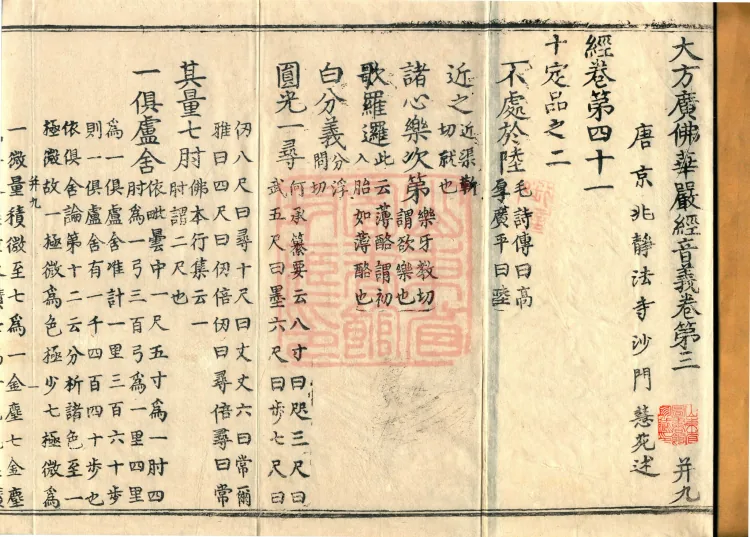 大方廣佛華嚴經音義卷第三 并九
唐京兆靜法寺沙門慧苑述
經卷第四十一
十定品之二
不處於陸 毛詩傳曰高
羣廣平曰陸
近之 近渠靳
切就也
諸心樂次第 樂牙教切
謂欲樂也
歌羅邏 此云薄酪謂初
入胎如薄酪也
白分義 分浮
問切
圓光一尋 何承纂要云八寸曰咫三尺曰
武五尺曰墨六尺曰步七尺曰
仞八尺曰尋十尺曰丈丈六曰常爾
雅曰四尺曰仞倍仞曰尋倍尋曰常
其量七肘 佛本行集云一
肘謂二尺也
一俱盧舍 依毗曇中一尺五寸爲一肘四
肘爲一弓三百弓爲一里四里
爲一俱盧舍准計一里三百六十步
則一俱盧舍有一千四百四十步也
依俱舍論第十二云分析諸色至一
極微故一極微爲色極少七極微爲
并九
一微量積微至七爲一金塵七金塵